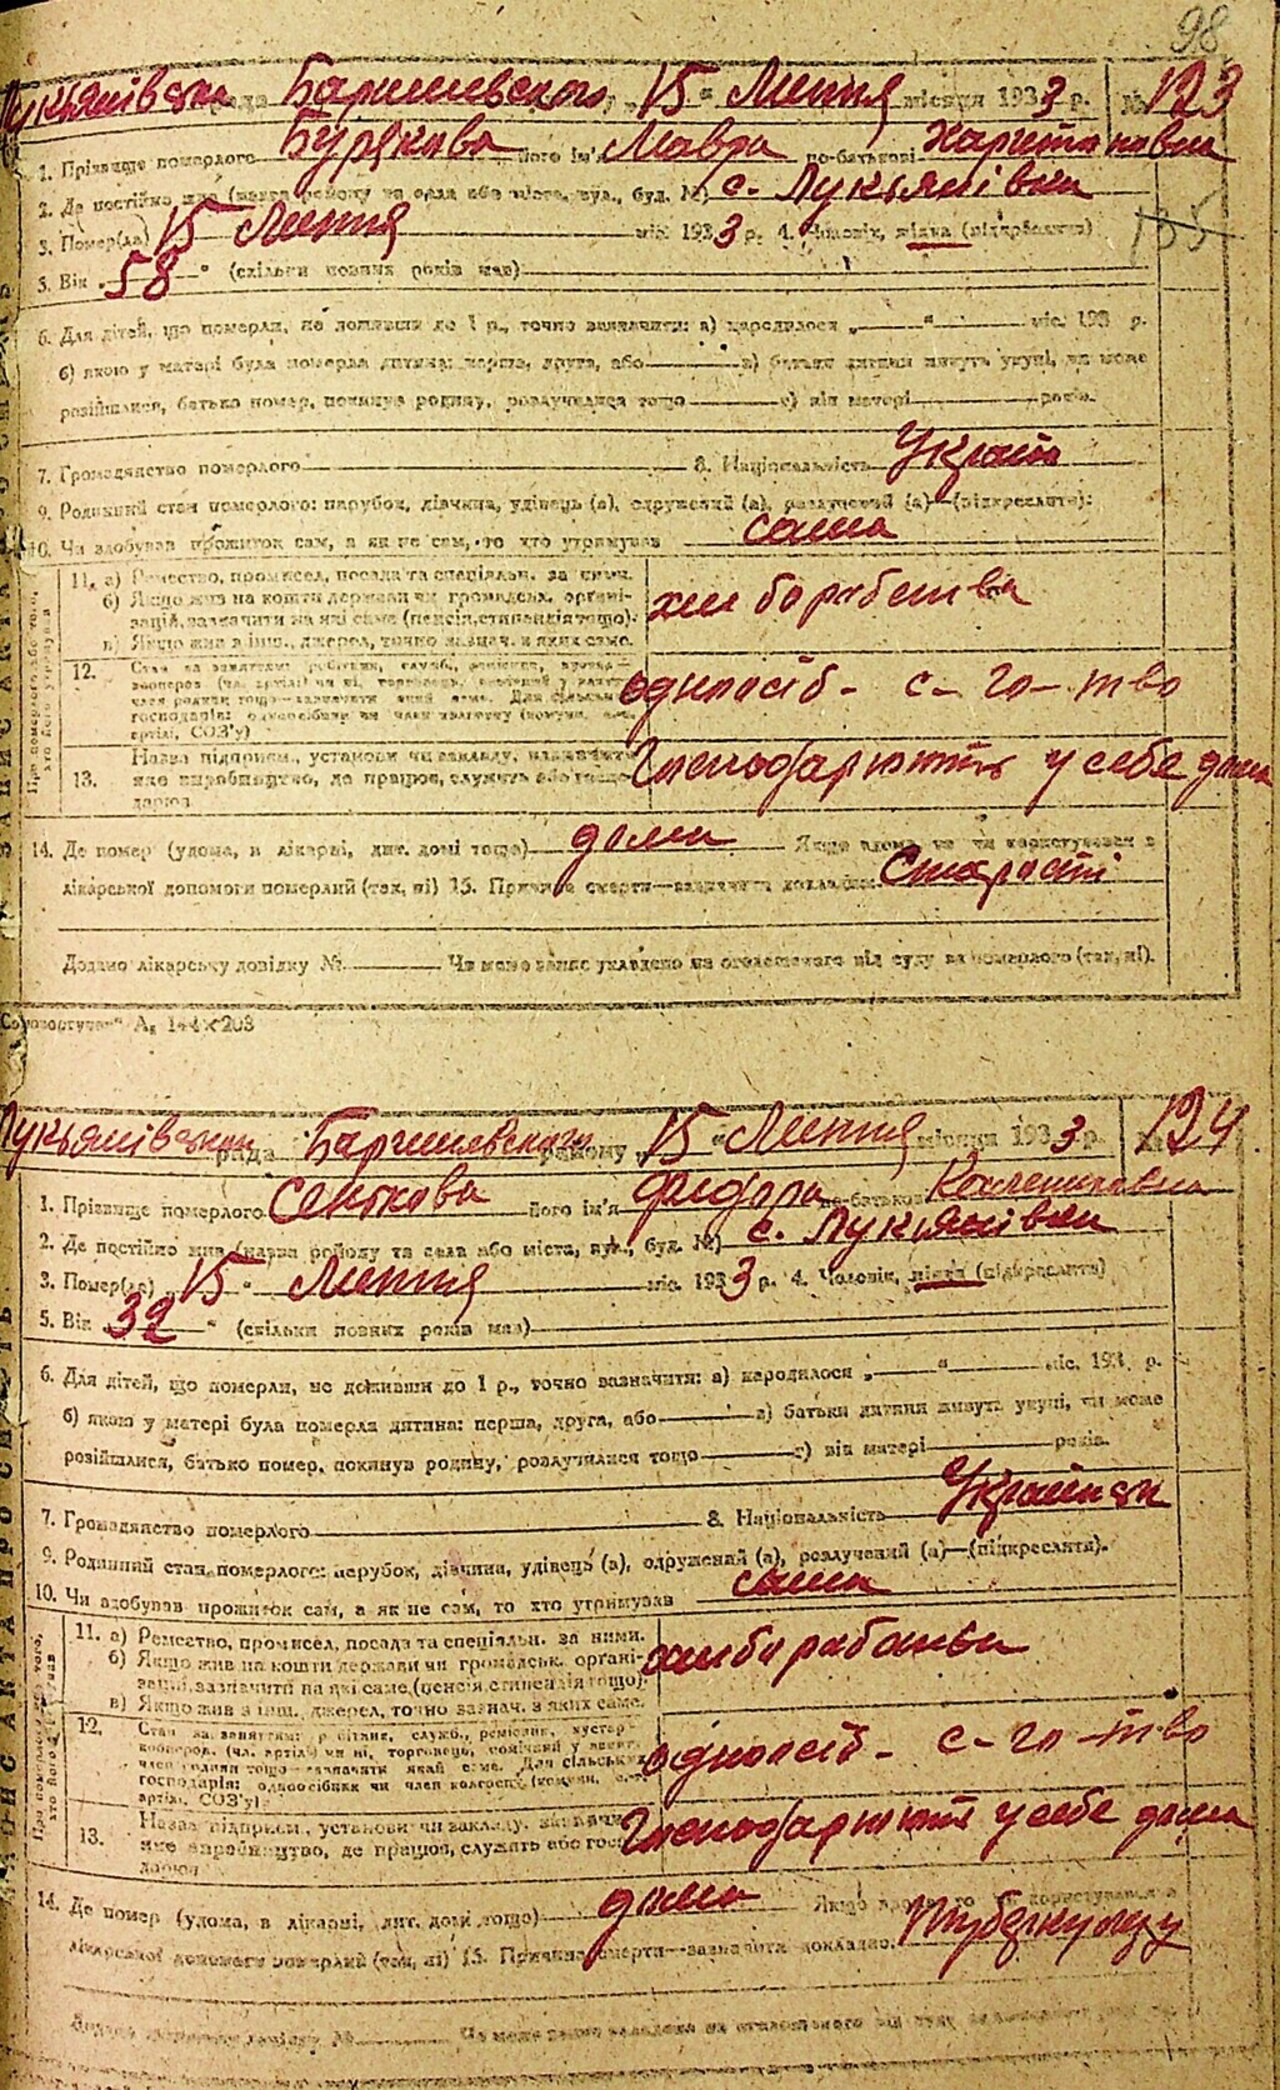 98
Лукьянівська рада Баришевського району „15“ Липня місяця 1933 р. № 123
1. Прізвище померлого Бурякова його ім'я Мавра по-батькові Харитоновна
2. Де постійно жив (назва району та села або міста, вул., буд. №) с. Лукьянівка
3. Помер(ла) 15 Липня міс. 1933 р. 4. Чоловік, жінка (підкреслити)
135
5. Вік „58“ (скільки повних років мав)
6. Для дітей, що померли, не доживши до 1 р., точно зазначити: а) народилося „ “ міс. 193 р.
б) якою у матері була померла дитина: перша, друга, або в) батьки дитини живуть укупі, чи може
розійшлися, батько помер, покинув родину, розлучилися тощо г) вік матері років.
7. Громадянство померлого 8. Національність Україн
9. Родинний стан померлого: парубок, дівчина, удівець (а), одружений (а), розлучений (а)—(підкреслити):
10. Чи здобував прожиток сам, а як не сам, то хто утримував сама
11. а) Ремество, промисел, посада та спеціяльн. за ними.
б) Якщо жив на кошти держави чи громадськ. орґані-
зацій, зазначити на які саме (пенсія, стипендія тощо).
в) Якщо жив з інш. джерел, точно зазнач. з яких саме.
хліборобства
12. одноосіб- с-го-тво
господарів: одноосібник чи член колгоспу (комуни, с.-г.
артілі, СОЗ'у)
13. Назва підприєм., установи чи закладу, зазначити
яке виробництво, де працює, служить або госпо-
дарює
Господарюють у себе дома
14. Де помер (удома, в лікарні, дит. домі тощо) дома Якщо вдома то чи користувався з
лікарської допомоги померлий (так, ні) 15. Причина смерти—зазначити докладно. Старості
Додано лікарську довідку № Чи може запис укладено на оголошеного від суду за померлого (так, ні).
А₅ 144×203
Лукьянівська рада Баришевського району „15“ Липня місяця 1933 р. № 124
1. Прізвище померлого Сенькова його ім'я Федора по-батькові
2. Де постійно жив (назва району та села або міста, вул., буд. №) с. Лукьянівка
3. Помер(ла) „15“ Липня міс. 1933 р. 4. Чоловік, жінка (підкреслити)
5. Вік „32“ (скільки повних років мав)
6. Для дітей, що померли, не доживши до 1 р., точно зазначити: а) народилося „ “ міс. 193 р.
б) якою у матері була померла дитина: перша, друга, або в) батьки дитини живуть укупі, чи може
розійшлися, батько помер, покинув родину, розлучилися тощо г) вік матері років.
7. Громадянство померлого 8. Національність Українка
9. Родинний стан померлого: парубок, дівчина, удівець (а), одружений (а), розлучений (а)—(підкреслити).
10. Чи здобував прожиток сам, а як не сам, то хто утримував сама
11. а) Ремество, промисел, посада та спеціяльн. за ними.
б) Якщо жив на кошти держави чи громадськ. орґані-
зацій, зазначити на які саме (пенсія, стипендія тощо).
в) Якщо жив з інш. джерел, точно зазнач. з яких саме.
хліборобства
12. Стан за заняттям: робітник, служб., ремісник, кустар-
кооперов. (чл. артілі) чи ні, торговець, помічний у занят.
член родини тощо—зазначити який саме. Для сільських
господарів: одноосібник чи член колгоспу (комуни, с.-г.
артілі, СОЗ'у)
одноосіб- с-го-тво
13. Назва підприєм., установи чи закладу, зазначити
яке виробництво, де працює, служить або госпо-
дарює
Господарюють у себе дома
14. Де помер (удома, в лікарні, дит. домі тощо) дома Якщо вдома то чи користувався з
лікарської допомоги померлий (так, ні) 15. Причина смерти—зазначити докладно. туберкульозу
Додано лікарську довідку № Чи може запис укладено на оголошеного від суду за померлого